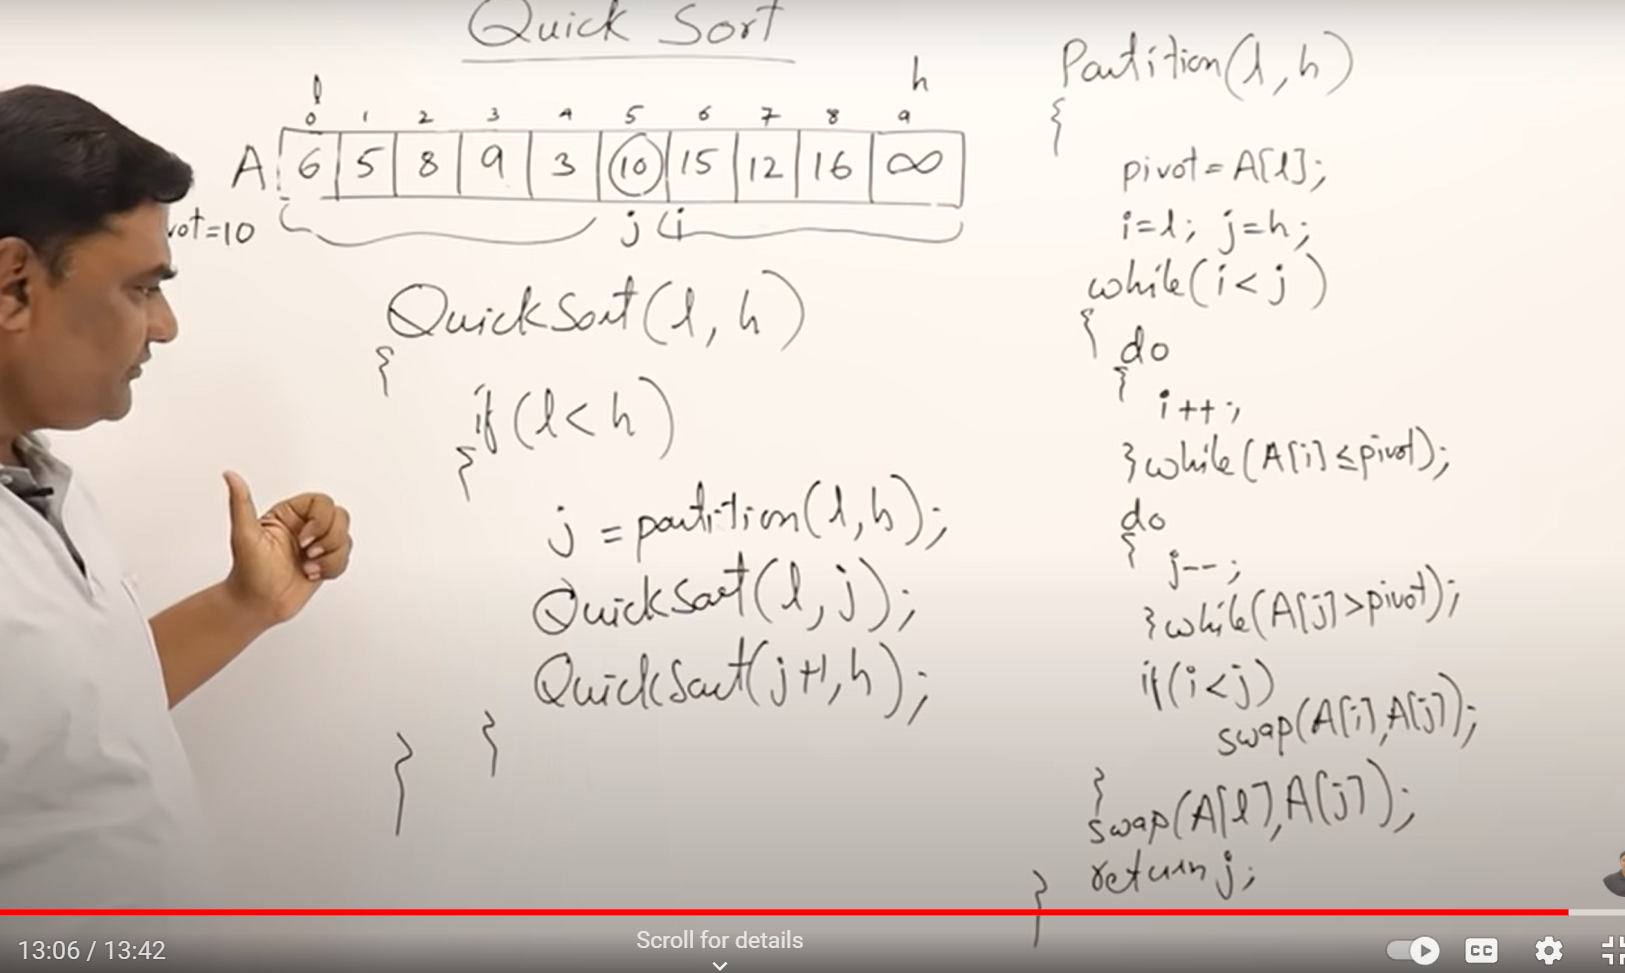 Quick Sort
l h
0 1 2 3 4 5 6 7 8 9
A 6 5 8 9 3 10 15 12 16 ∞
vot=10 j i
QuickSort(l, h)
{
if(l<h)
{
j = partition(l,h);
QuickSort(l,j);
QuickSort(j+1,h);
}
}
Partition(l,h)
{
pivot=A[l];
i=l; j=h;
while(i<j)
{ do
{
i++;
}while(A[i]≤pivot);
do
{
j--;
}while(A[j]>pivot);
if(i<j)
swap(A[i],A[j]);
}
swap(A[l],A[j]);
return j;
}
13:06 / 13:42
Scroll for details
CC